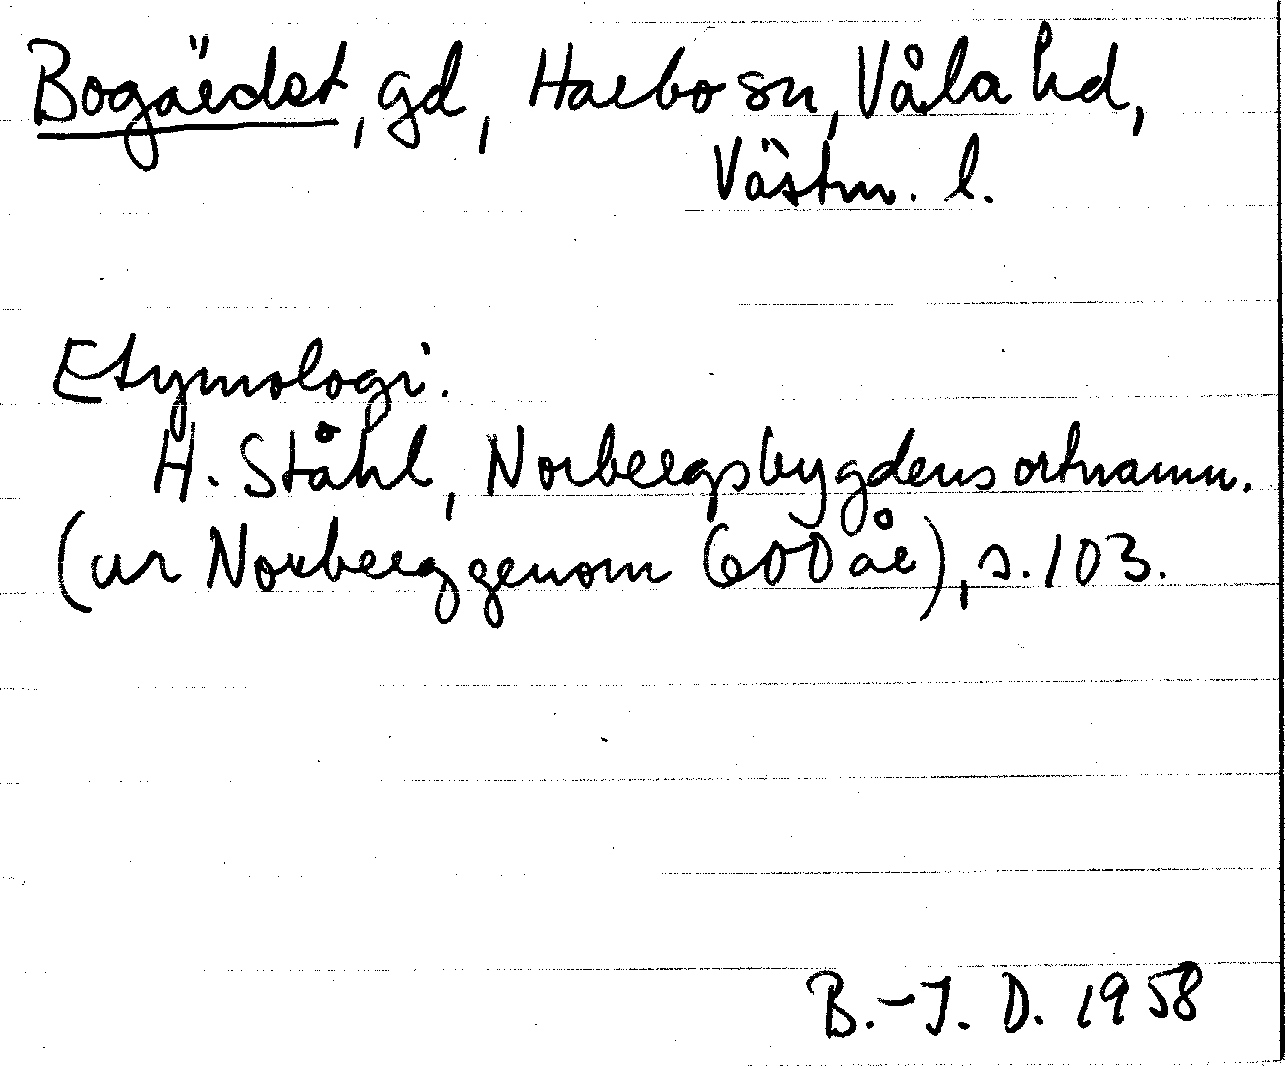 Bogärdet, gd, Harbo sn, Våla hd,
Västm. l.
Etymologi.
H. Ståhl, Norbergsbygdens ortnamn.
(ur Norberg genom 600 år), s. 103.
B.-I. D. 1958